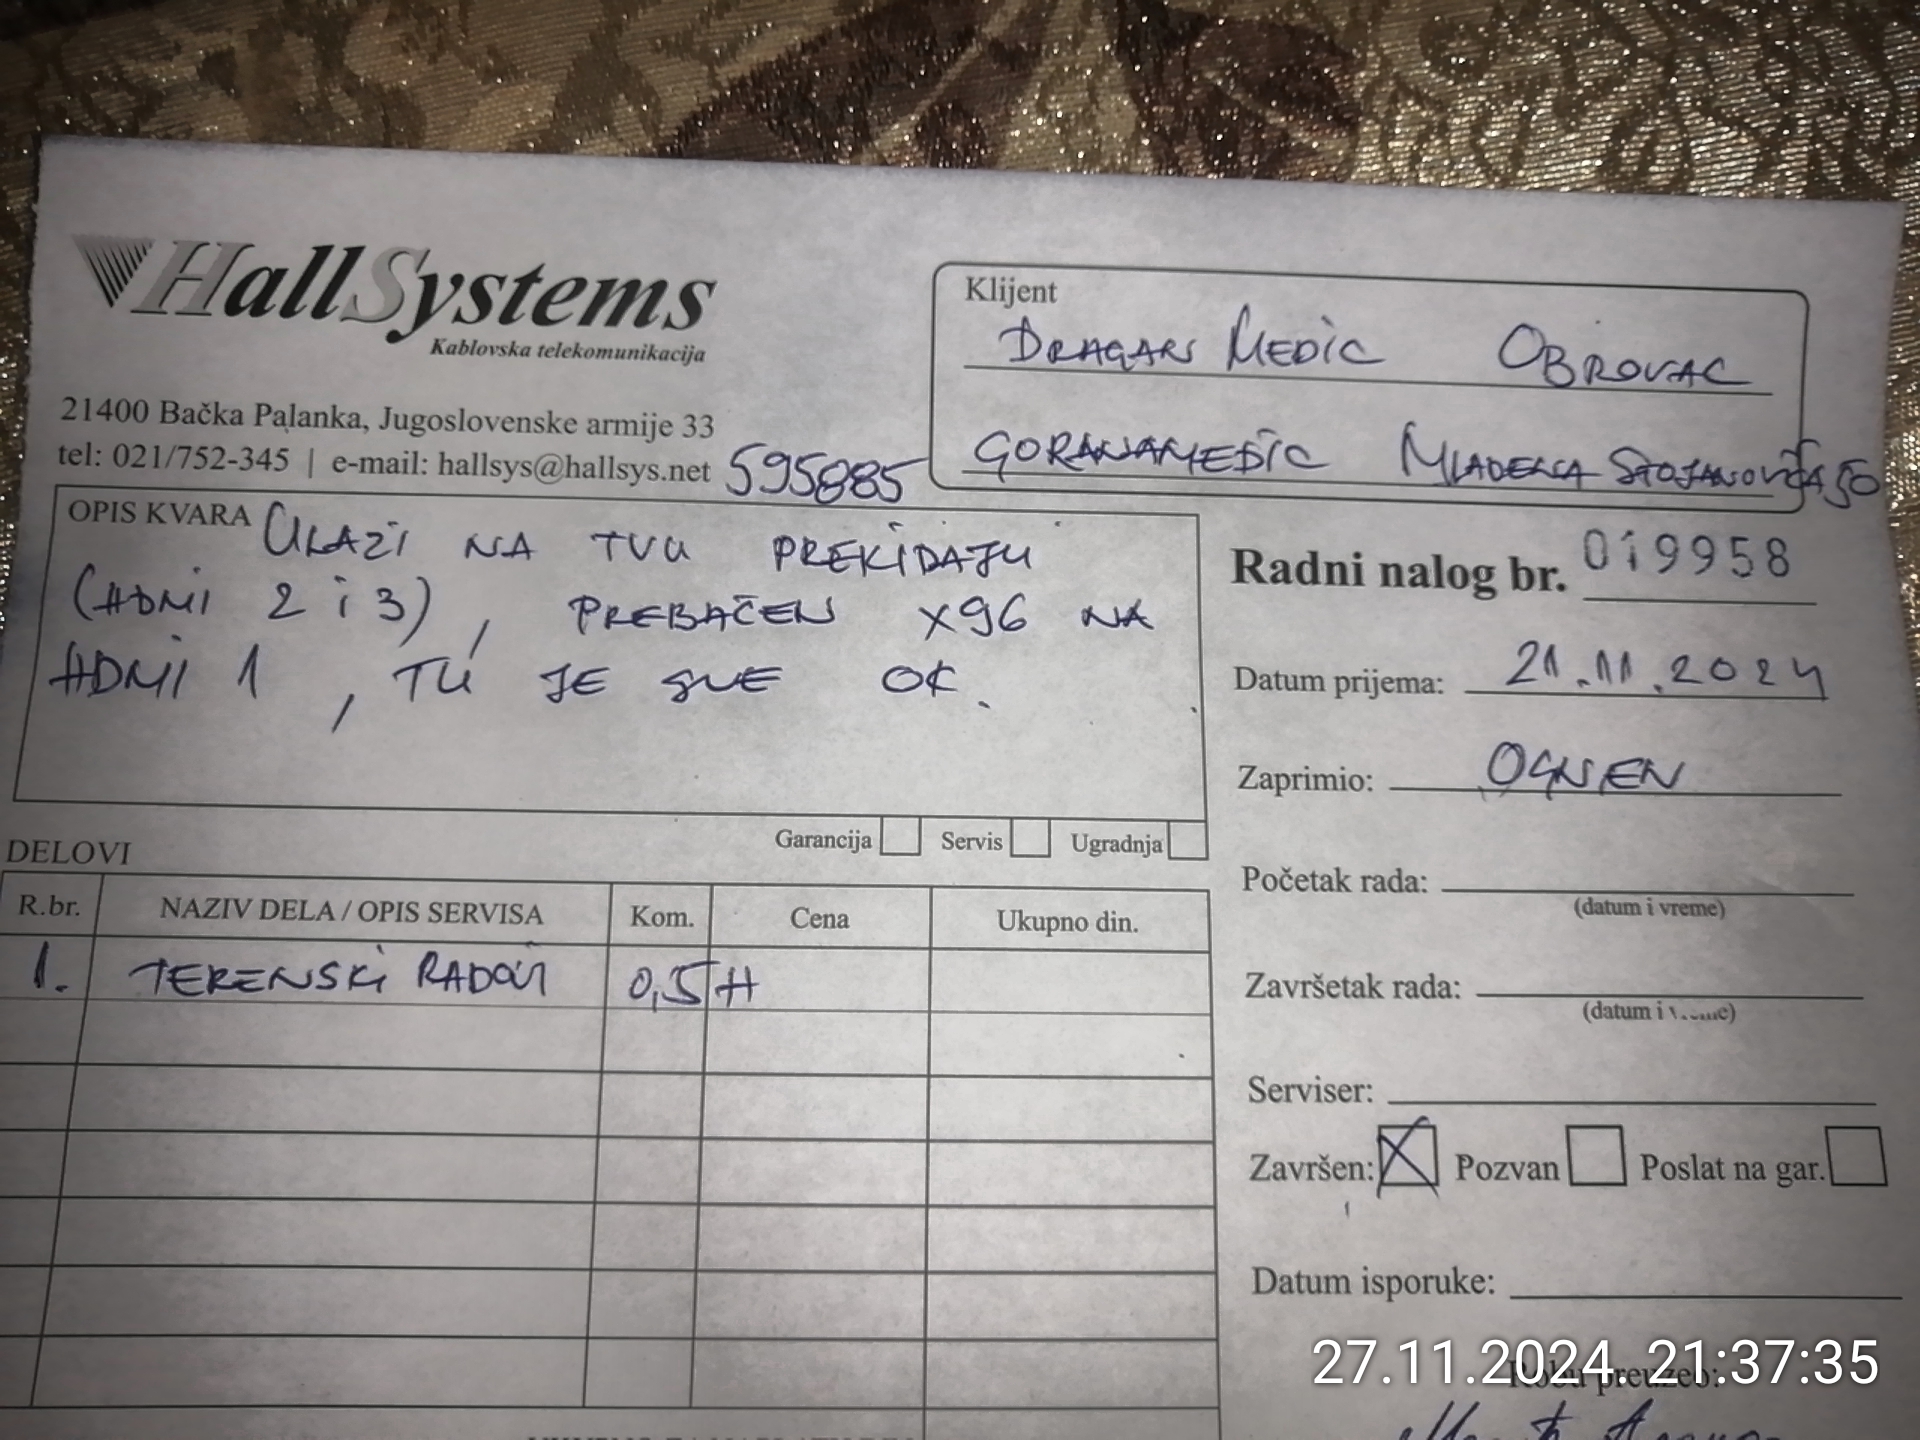 HallSystems
Kablovska telekomunikacija
21400 Bačka Palanka, Jugoslovenske armije 33
tel: 021/752-345 | e-mail: hallsys@hallsys.net
595885
Klijent
DRAGAN MEDIC OBROVAC
GORANAMEDIC MLADENA STOJANOVIĆA 50
OPIS KVARA ULAZI NA TVU PREKIDAJU
(HDMI 2 i 3), PREBAČEN X96 NA
HDMI 1, TU JE SVE OK.
Garancija Servis Ugradnja
Radni nalog br. 019958
Datum prijema: 21.11.2024
Zaprimio: OGNJEN
Početak rada:
(datum i vreme)
Završetak rada:
(datum i vreme)
Serviser:
Završen: Pozvan Poslat na gar.
Datum isporuke:
Robu preuzeo:
DELOVI
R.br. NAZIV DELA / OPIS SERVISA Kom. Cena Ukupno din.
1. TERENSKI RADOVI 0,5 H
27.11.2024. 21:37:35